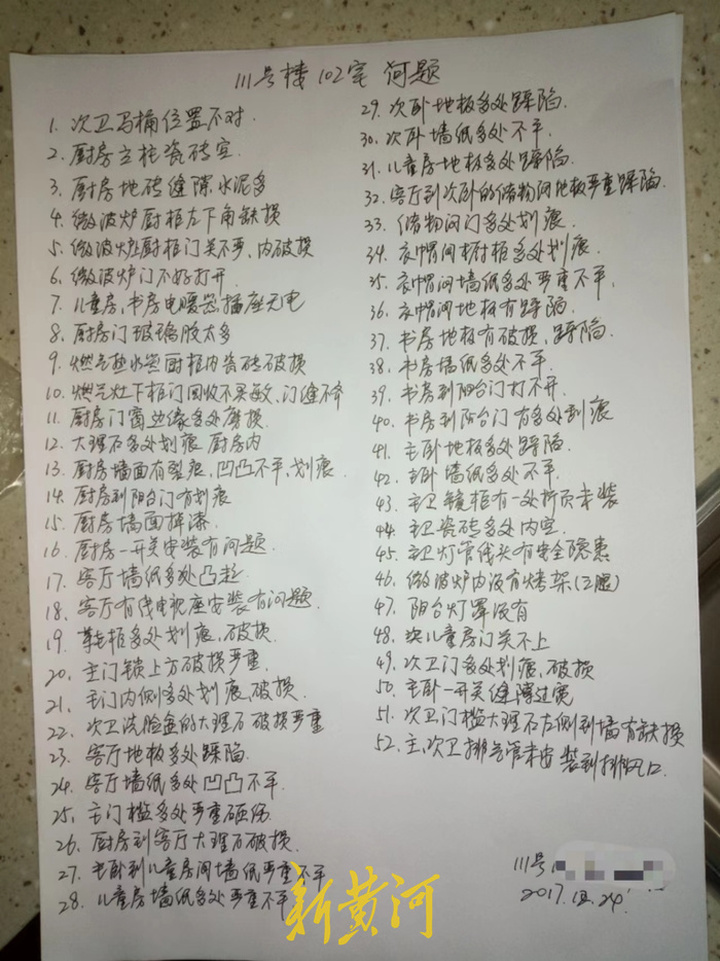 111号楼102室 问题
1. 次卫马桶位置不对.
2. 厨房立柱瓷砖空.
3. 厨房地砖缝隙水泥多
4. 微波炉厨柜左下角缺损
5. 微波炉厨柜门关不严、内破损
6. 微波炉门不好打开.
7. 儿童房、书房电暖器,插座无电
8. 厨房门玻璃胶太多
9. 燃气热水器厨柜内瓷砖破损
10. 燃气灶下柜门回收不灵敏、门缝不合
11. 厨房门窗边缘多处磨损.
12. 大理石多处划痕 厨房内
13. 厨房墙面有裂痕,凹凸不平,划痕.
14. 厨房到阳台门有划痕
15. 厨房墙面掉漆.
16. 厨房一开关安装有问题.
17. 客厅墙纸多处凸起.
18. 客厅有线电视座安装有问题.
19. 鞋柜多处划痕,破损.
20. 主门锁上方破损严重.
21. 主门内侧多处划痕,破损.
22. 次卫洗脸盆的大理石破损严重
23. 客厅地板多处踩陷.
24. 客厅墙纸多处凹凸不平.
25. 主门槛多处严重砸伤
26. 厨房到客厅大理石破损.
27. 主卧到儿童房间墙纸严重不平
28. 儿童房墙纸多处严重不平
29. 次卧地板多处踩陷.
30. 次卧墙纸多处不平.
31. 儿童房地板多处踩陷.
32. 客厅到次卧的储物间地板严重踩陷.
33. 储物间门多处划痕.
34. 衣帽间衬柜多处划痕.
35. 衣帽间墙纸多处严重不平.
36. 衣帽间地板有踩陷.
37. 书房地板有破损,踩陷.
38. 书房墙纸多处不平.
39. 书房到阳台门打不开.
40. 书房到阳台门有多处划痕
41. 主卧地板多处踩陷.
42. 主卧墙纸多处不平.
43. 主卫镜柜有一处折页未装
44. 主卫瓷砖多处内空.
45. 主卫灯管线头有安全隐患
46. 微波炉内没有烤架(2层)
47. 阳台灯罩没有
48. 儿童房门关不上
49. 次卫门多处划痕,破损
50. 主卧一开关缝隙过宽
51. 次卫门槛大理石左侧到墙有缺损
52. 主、次卫排气管未安装到排风口.
111号
2017.12.24.
新黄河